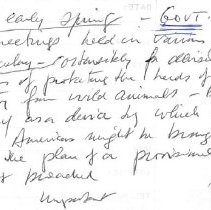 early Spring - GOVT
meetings held in various
- ostensibly to devise
of protecting the herds of
from wild animals -
as a device by which
Americans might be brou
the plan of a provisional
broached
Important